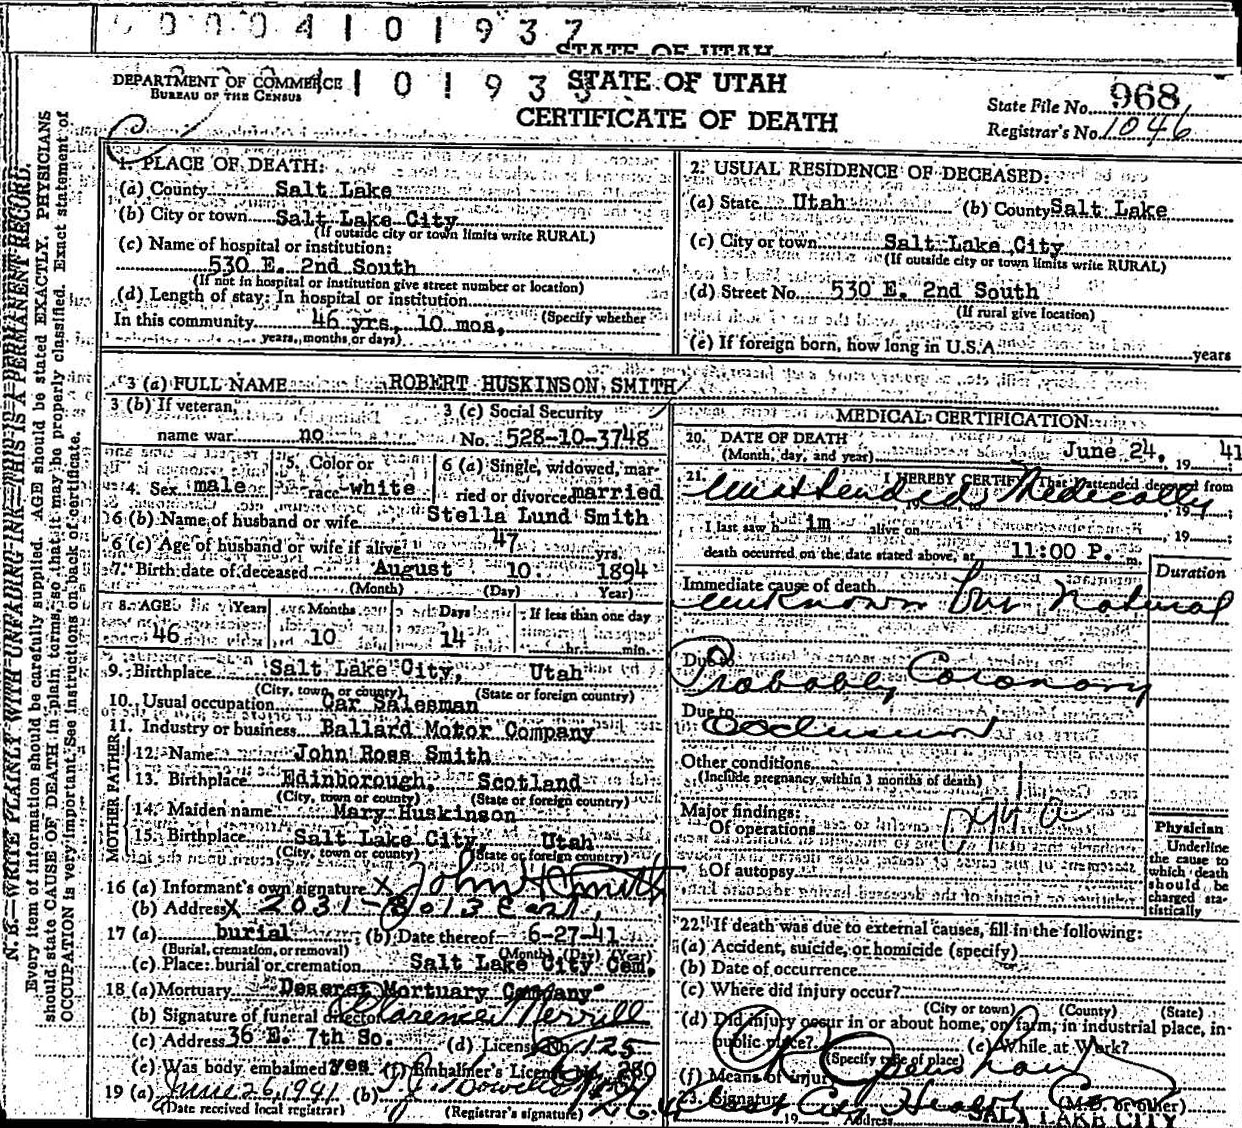 0004101937
STATE OF UTAH
DEPARTMENT OF COMMERCE
BUREAU OF THE CENSUS
STATE OF UTAH
CERTIFICATE OF DEATH
State File No. 968
Registrar's No. 1046
N. B.—WRITE PLAINLY WITH UNFADING INK—THIS IS A PERMANENT RECORD.
Every item of information should be carefully supplied. AGE should be stated EXACTLY. PHYSICIANS
should state CAUSE OF DEATH in plain terms, so that it may be properly classified. Exact statement of
OCCUPATION is very important. See instructions on back of certificate.
1. PLACE OF DEATH:
(a) County Salt Lake
(b) City or town Salt Lake City
(If outside city or town limits write RURAL)
(c) Name of hospital or institution:
530 E. 2nd South
(If not in hospital or institution give street number or location)
(d) Length of stay: In hospital or institution
(Specify whether
In this community 46 yrs, 10 mos,
years, months or days)
2. USUAL RESIDENCE OF DECEASED:
(a) State Utah (b) County Salt Lake
(c) City or town Salt Lake City
(If outside city or town limits write RURAL)
(d) Street No. 530 E. 2nd South
(If rural give location)
(e) If foreign born, how long in U.S.A. years
3 (a) FULL NAME ROBERT HUSKINSON SMITH
3 (b) If veteran, name war no
3 (c) Social Security No. 528-10-3748
4. Sex male
5. Color or race white
6 (a) Single, widowed, married or divorced married
6 (b) Name of husband or wife Stella Lund Smith
6 (c) Age of husband or wife if alive 47 yrs.
7. Birth date of deceased August 10 1894
(Month) (Day) Year)
8. AGE Years Months Days If less than one day
46 10 14 hr. min.
9. Birthplace Salt Lake City, Utah
(City, town, or county) (State or foreign country)
10. Usual occupation Car Salesman
11. Industry or business Ballard Motor Company
FATHER
12. Name John Ross Smith
13. Birthplace Edinborough, Scotland
(City, town or county) (State or foreign country)
MOTHER
14. Maiden name Mary Huskinson
15. Birthplace Salt Lake City, Utah
(City, town or county) (State or foreign country)
16 (a) Informant's own signature x John H Smith
(b) Address x 2031 - 8 13 East
17 (a) burial (b) Date thereof 6-27-41
(Burial, cremation, or removal) (Month) (Day) (Year)
(c) Place: burial or cremation Salt Lake City Cem.
18 (a) Mortuary Deseret Mortuary Company
(b) Signature of funeral director Clarence Merrill
(c) Address 36 E. 7th So. (d) License No. 125
(e) Was body embalmed yes (f) Embalmer's License No. 280
19 (a) June 26, 1941 (b)
(Date received local registrar) (Registrar's signature)
MEDICAL CERTIFICATION
20. DATE OF DEATH
(Month, day, and year) June 24, 19 41
21. I HEREBY CERTIFY, That I attended deceased from
Unattended Medically
19 to 19
I last saw h im alive on 19
death occurred on the date stated above, at 11:00 P. m.
Duration
Immediate cause of death
unknown but Natural
Due to
Probably Coronary
Due to
occlusion
Other conditions
(Include pregnancy within 3 months of death)
Major findings:
Of operations
Of autopsy
Physician
Underline
the cause to
which death
should be
charged sta-
tistically
22. If death was due to external causes, fill in the following:
(a) Accident, suicide, or homicide (specify)
(b) Date of occurrence
(c) Where did injury occur?
(City or town) (County) (State)
(d) Did injury occur in or about home, on farm, in industrial place, in
public place? (e) While at Work?
(Specify type of place)
(f) Means of injury
23. Signature (M.D. or other)
City Health Com
19 Address SALT LAKE CITY